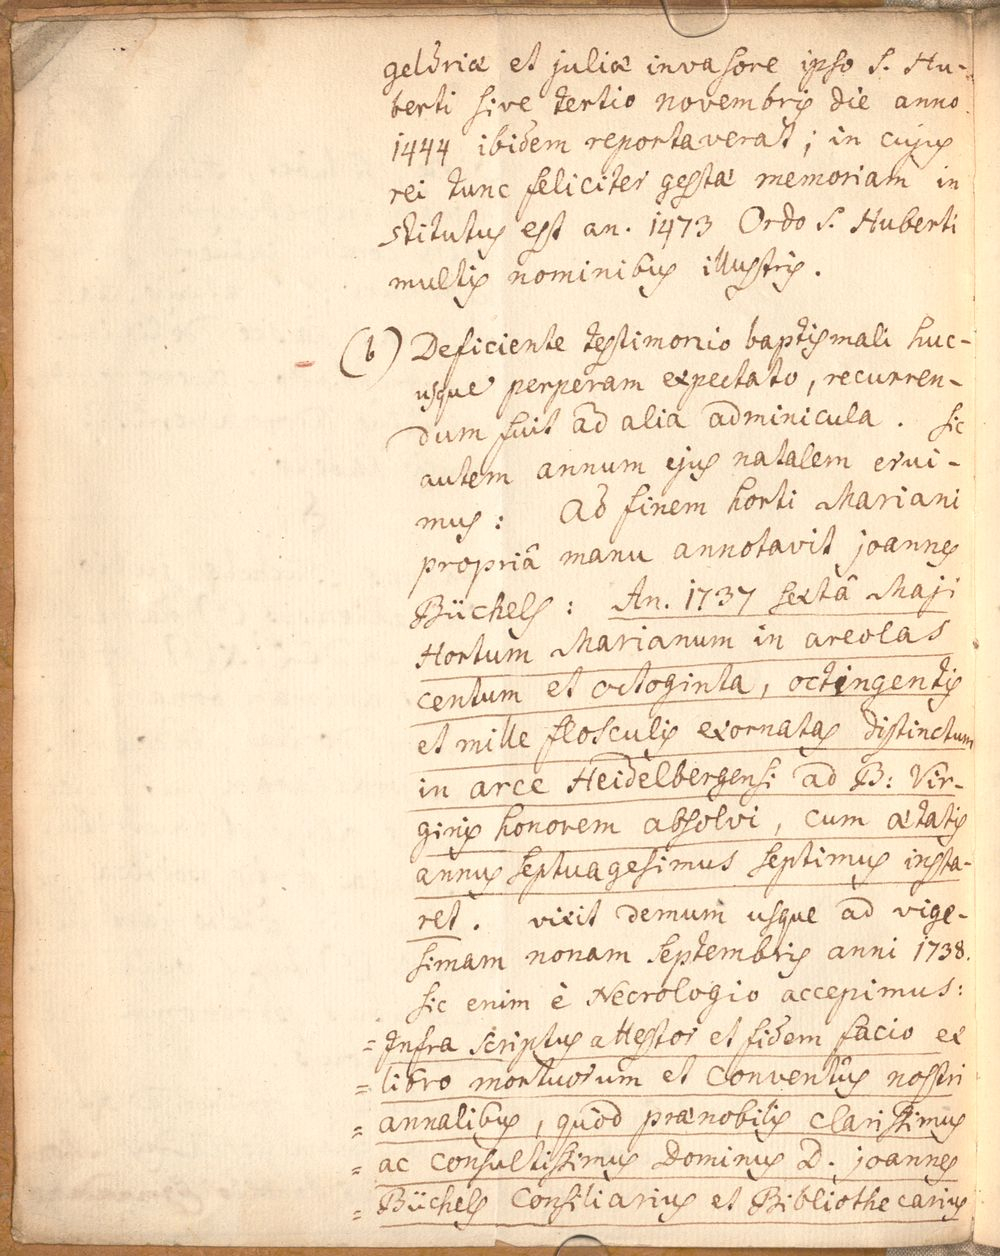 geldriæ et juliæ invasore ipso S. Hu-
berti sive tertio novembris die anno
1444 ibidem reportaverat; in cujus
rei tunc feliciter gestæ memoriam in
stitutus est an. 1473 Ordo S. Huberti
multis nominibus illustris.
(b) Deficiente testimonio baptismali huc-
usque perperam expectato, recurren-
dum fuit ad alia adminicula. Sic
autem annum ejus natalem erui-
mus: Ad finem horti Mariani
propriâ manu annotavit joannes
Büchels: An. 1737 sextâ Maji
Hortum Marianum in areolas
centum et octoginta, octingentis
et mille flosculis exornatas distinctum
in arce Heidelbergensi ad B: Vir-
ginis honorem absolvi, cum ætatis
annus septuagesimus septimus insta-
ret. vixit demum usque ad vige-
simam nonam septembris anni 1738.
Sic enim è Necrologio accepimus:
= Infra scriptus attestor et fidem facio ex
= libro mortuorum et Conventûs nostri
= annalibus, quòd prænobilis clarissimus
= ac Consultissimus Dominus D. joannes
= Büchels Consiliarius et Bibliothecarius